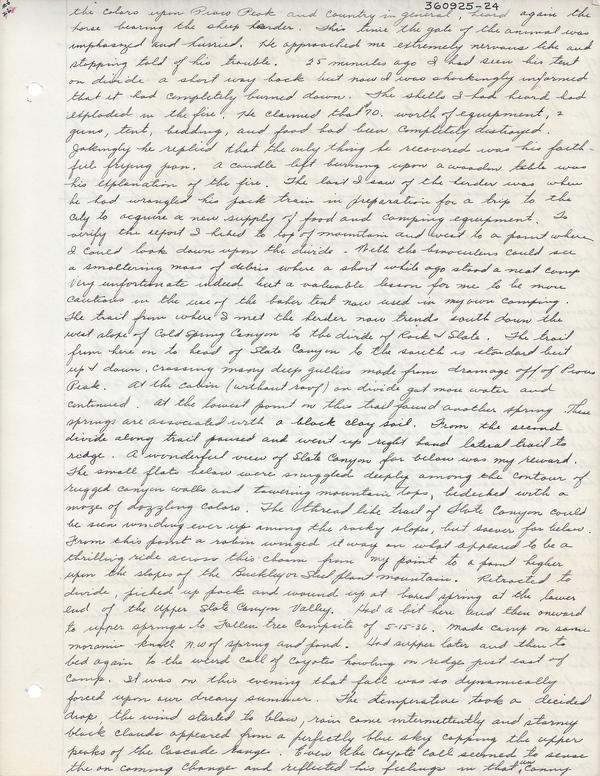 360925-24
the colors upon Provo Peak and country in general, heard again the
horse bearing the sheep herder. This time the gate of the animal was
unphased and hurried. He approached me extremely nervous like and
stopping told of his trouble. 25 minutes ago I had seen his tent
on divide a short way back but now I was shockingly informed
that it had completely burned down. The shells I had heard had
exploded in the fire. He claimed that $70. worth of equipment, 2
guns, tent, bedding, and food had been completely destroyed.
Jokingly he replied that the only thing he recovered was his faith-
ful frying pan. A candle left burning upon a wooden table was
his explanation of the fire. The last I saw of the herder was when
he had wrangled his pack train in preparation for a trip to the
city to acquire a new supply of food and camping equipment. To
verify the report I hiked to top of mountain and west to a point where
I could look down upon the divide. With the binoculars could see
a smoltering mass of debris where a short while ago stood a neat camp
Very unfortunate indeed but a valuable lesson for me to be more
cautious in the use of the baker tent now used in my own camping.
The trail from where I met the herder now trends south down the
west slope of Cold Spring Canyon to the divide of Rock & Slate. The trail
from here on to head of Slate Canyon to the south is standard but
up & down, crossing many deep gullies made from drainage off of Provo
Peak. At the cabin (without roof) on divide got more water and
continued. At the lowest point on this trail found another spring. These
springs are associated with a black clay soil. From the second
divide along trail paused and went up right hand lateral trail to
ridge. A wonderful view of Slate Canyon far below was my reward.
The small flats below were snuggled deeply among the contour of
rugged canyon walls and towering mountain tops, bedecked with a
maze of dazzling colors. The thread like trail of Slate Canyon could
be seen winding ever up among the rocky slopes, but so ever far below.
From this point a robin winged it way on what appeared to be a
thrilling ride across this chasm from my point to a point higher
upon the slopes of the Buckley or Steel plant mountain. Retraced to
divide, picked up pack and wound up at boxed spring at the lower
end of the Upper Slate Canyon Valley. Had a bit here and then onward
to upper springs to Fallen tree Campsite of 5-15-36. Made camp on same
morainic knoll N.W of spring and pond. Had supper later and then to
bed again to the weird call of Coyotes howling on ridge just east of
Camp. It was on this evening that fall was so dynamically
forced upon our dreary summer. The temperature took a decided
drop, the wind started to blow, rain came intermittently and stormy
black clouds appeared from a perfectly blue sky capping the upper
peaks of the Cascade range. Even the Coyote call seemed to sense
the on coming change and reflected his feelings in that canny